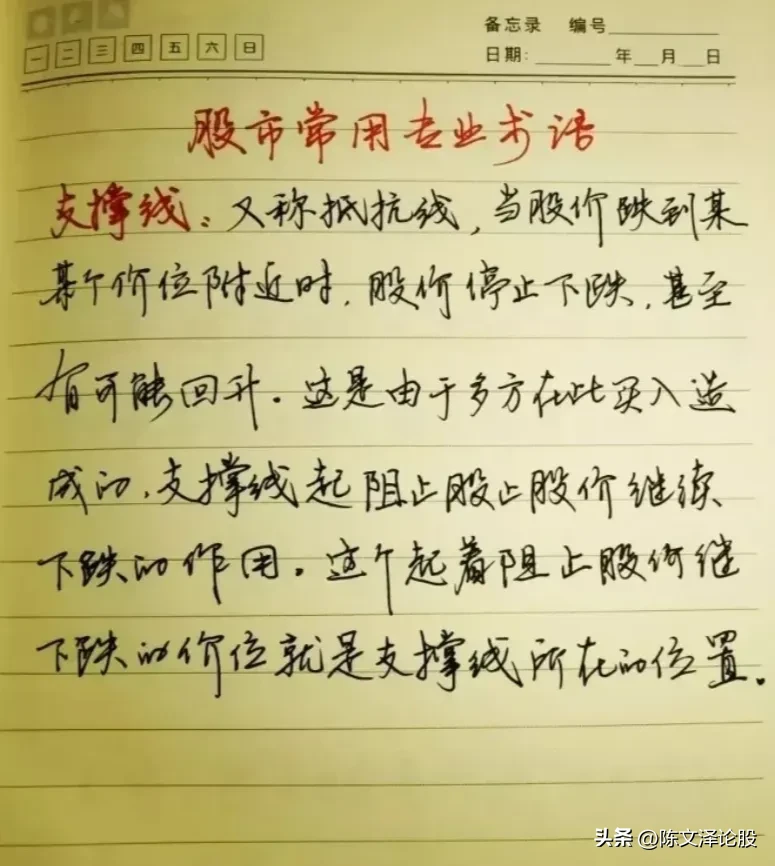 备忘录 编号
一 二 三 四 五 六 日
日期: 年 月 日
股市常用专业术语
支撑线: 又称抵抗线, 当股价跌到某
某个价位附近时, 股价停止下跌, 甚至
有可能回升。这是由于多方在此买入造
成的, 支撑线起阻止股止股价继续
下跌的作用。这个起着阻止股价继
下跌的价位就是支撑线所在的位置。
头条 @陈文泽论股